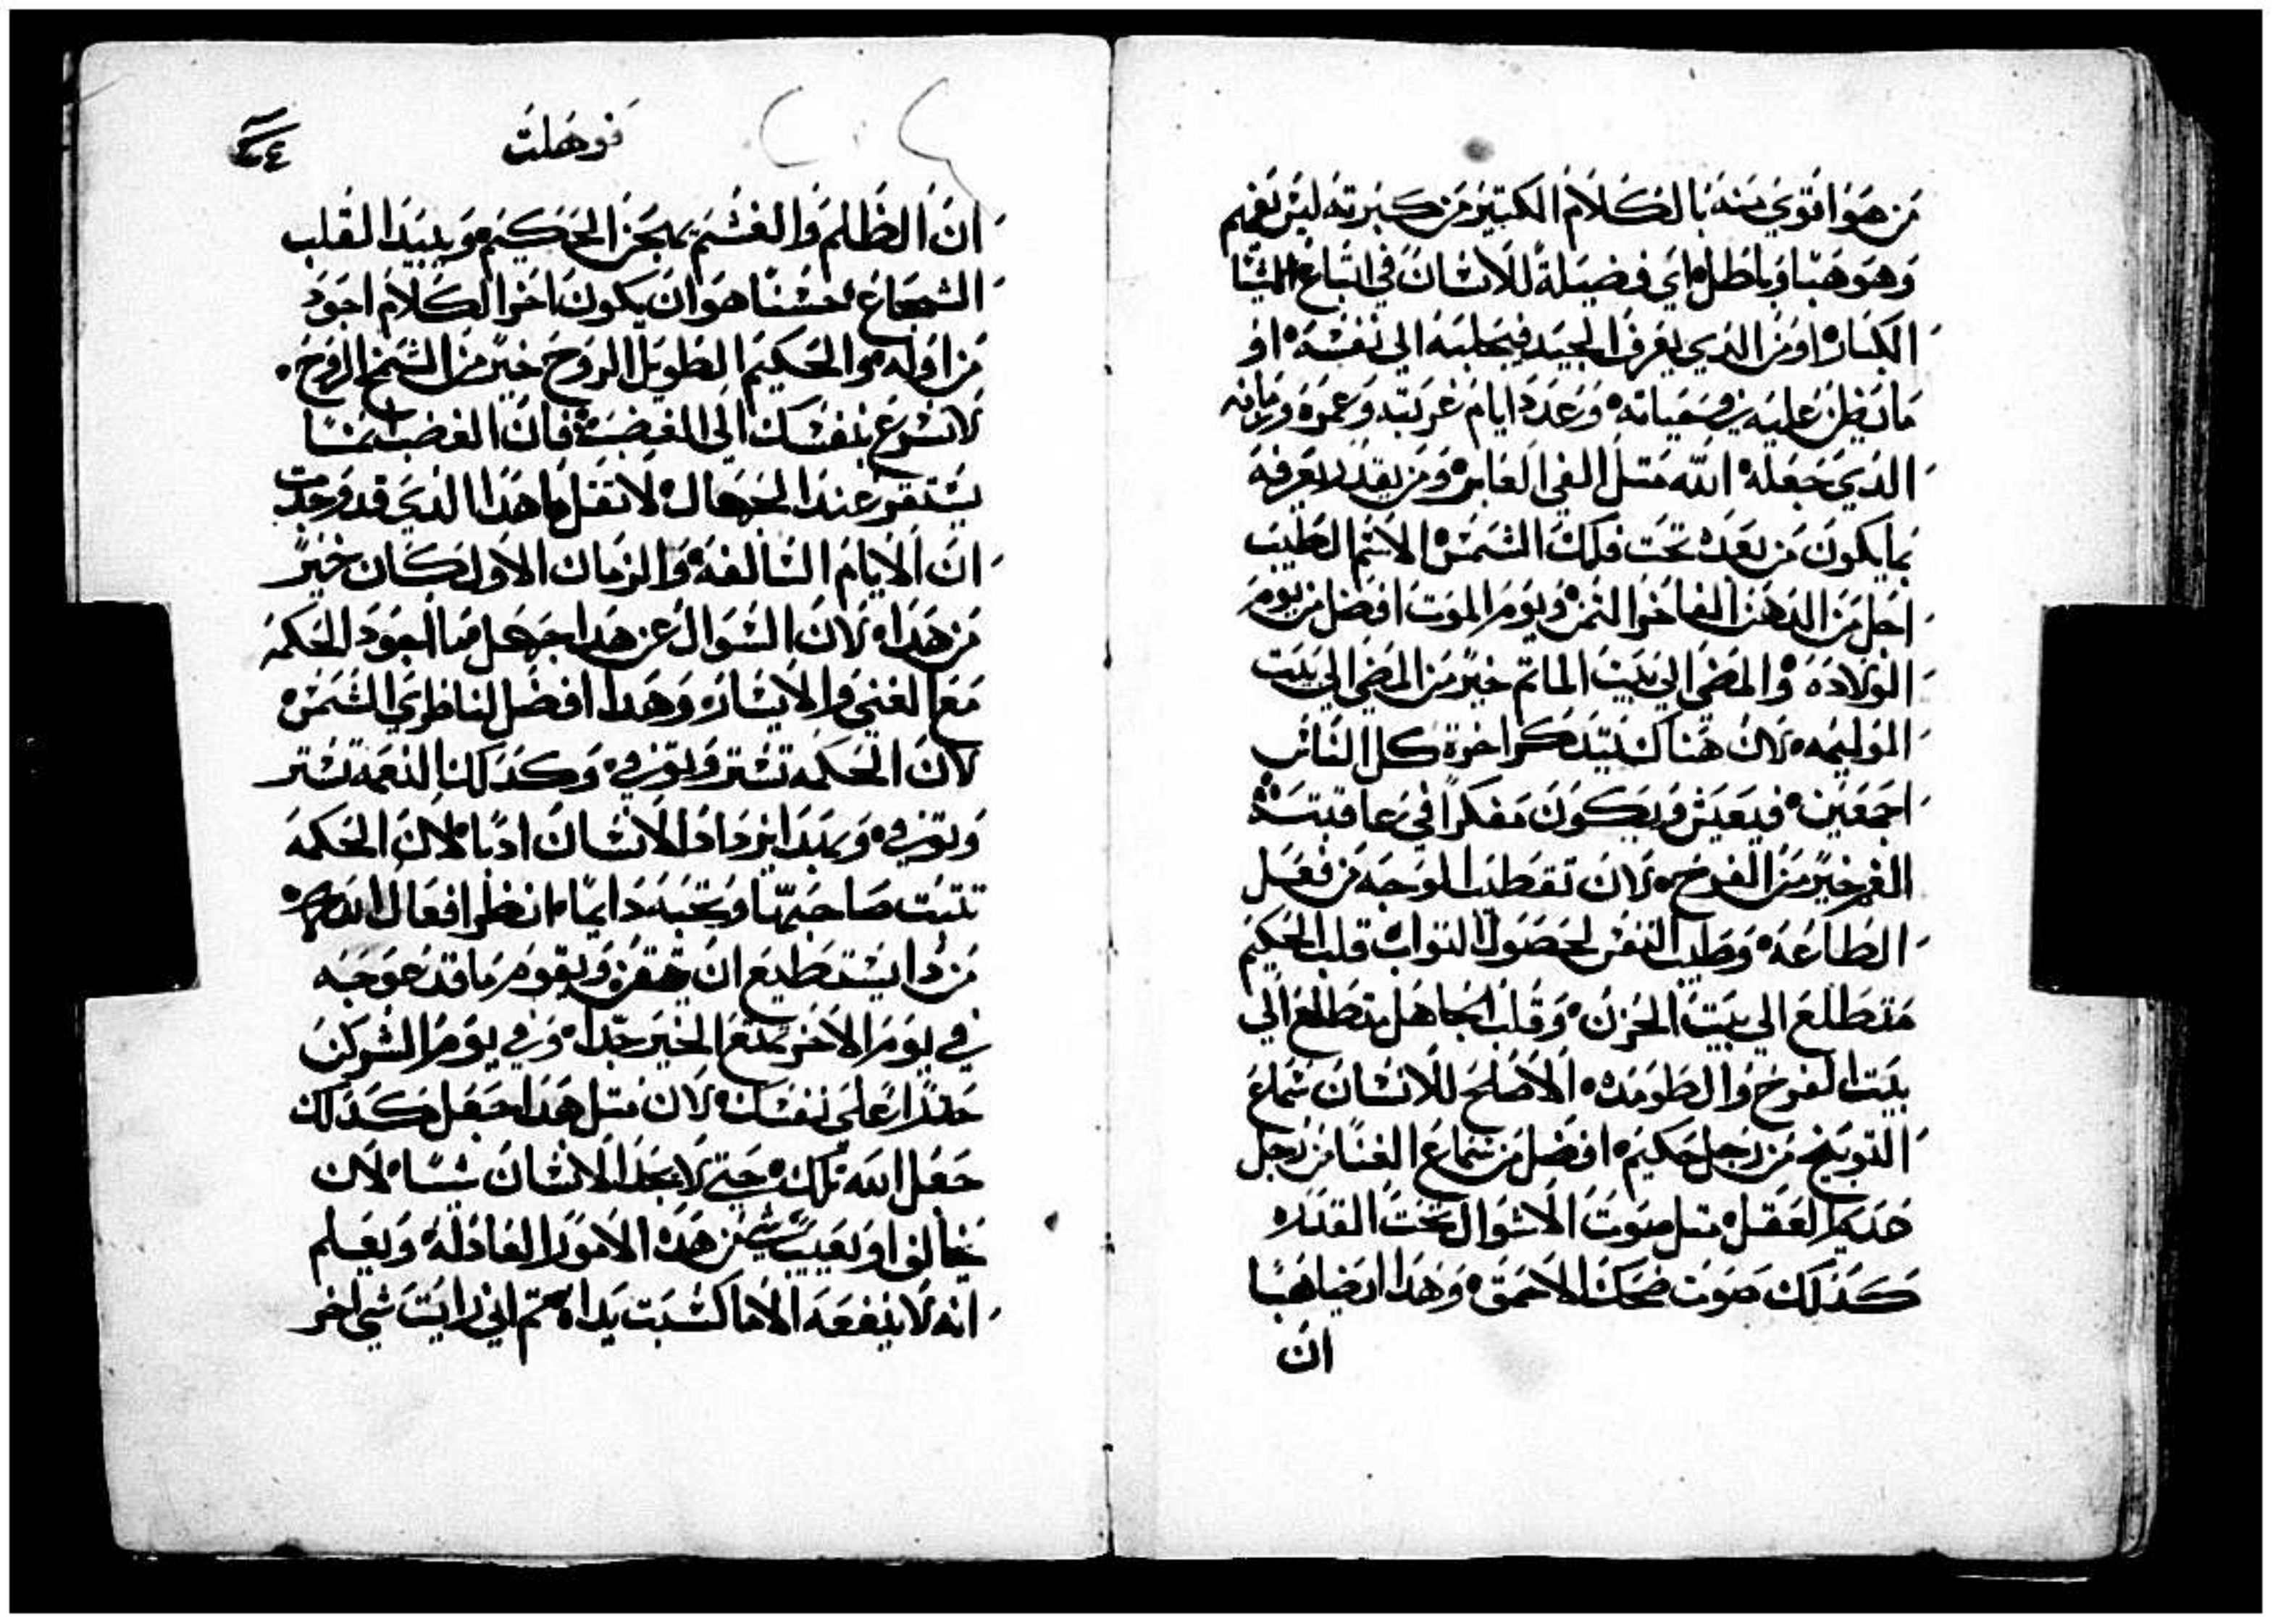 من هو اقوي منه بالكلام الكتير من كبرته ليس نفهم
وهو هبا وباطل اي فضيلة للانسان في اتباع
الكبار او من الدي يعرف الجيد فيجلبه الي نفسه او
ما يظن عليه في حياته وعدد ايام غربته وعمره وزمانه
الدي جعله الله متل الفي العابر ومن يقدر يعرفه
بما يكون من بعده تحت فلك الشمس الاسم الطيب
اجل من الدهن الفاخر التمن ويوم الموت افضل من يوم
الولاده والمضي الي بيت الماتم خير من المضي الي بيت
الوليمه لان هناك يتدكر اخرة كل الناس
اجمعين فيعيش ويكون مفكرا في عاقبته
الغم خير من الفرح لان تقطيب الوجه من فعل
الطاعه وطيب النفس لحصول التواب قلب الحكيم
متطلع الي بيت الحزن وقلب الجاهل متطلع الي
بيت الفرح والطومه الاصلح للانسان سماع
التوبيخ من رجل حكيم افضل من سماع الغنا من رجل
عديم العقل متل صوت الاشوال تحت القدر
كدلك صوت ضحك الاحمق وهدا ايضا هبا
ان
فوهلت
ان الظلم والغشم يهجن الحكيم ويبيد القلب
الشجاع حسنا هو ان يكون اخر الكلام اجود
من اوله والحكيم الطويل الروح خير من الشمخ الروح
لا تسرع بنفسك الي الغضب فان الغضب
يستقر عند الجهال لا تقل ما هدا الدي قد وجدت
ان الايام السالفه والزمان الاول كان خير
من هدا لان السوال عن هدا جهل ما اجود الحكمه
مع الغني والايسار وهدا افضل لناظري الشمس
لان الحكمه تستر وتوفي وكدلك النعمه تستر
وتوفي وبهدا يزداد الانسان ادبا لان الحكمه
تتبت صاحبها وتحبه دايما انظر افعال الله
من دا يستطيع ان ويقوم ما قد عوجه
في يوم الاخر تمتع الخير جدا وفي يوم الشر كن
حدرا علي نفسك لان متل هدا جعل كدلك
جعل الله تلك حتي لا يجد الانسان شيا لان
يخالف او يعيب شي من هده الامور العادله ويعلم
انه لا ينفعه الا ما كسبت يداه تم اني رايت شي اخر